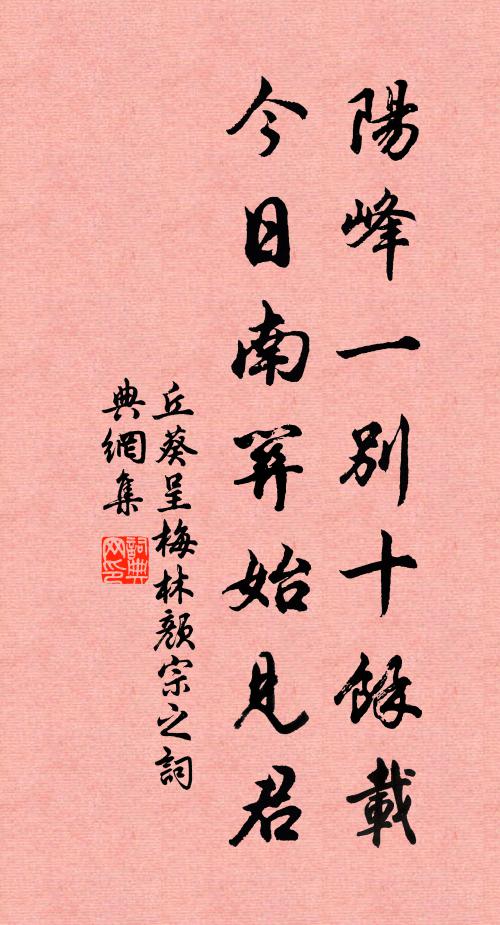 陽峰一別十餘載
今日南始見君
丘葵呈梅林顏宗之詞
典網集
詞典
网印